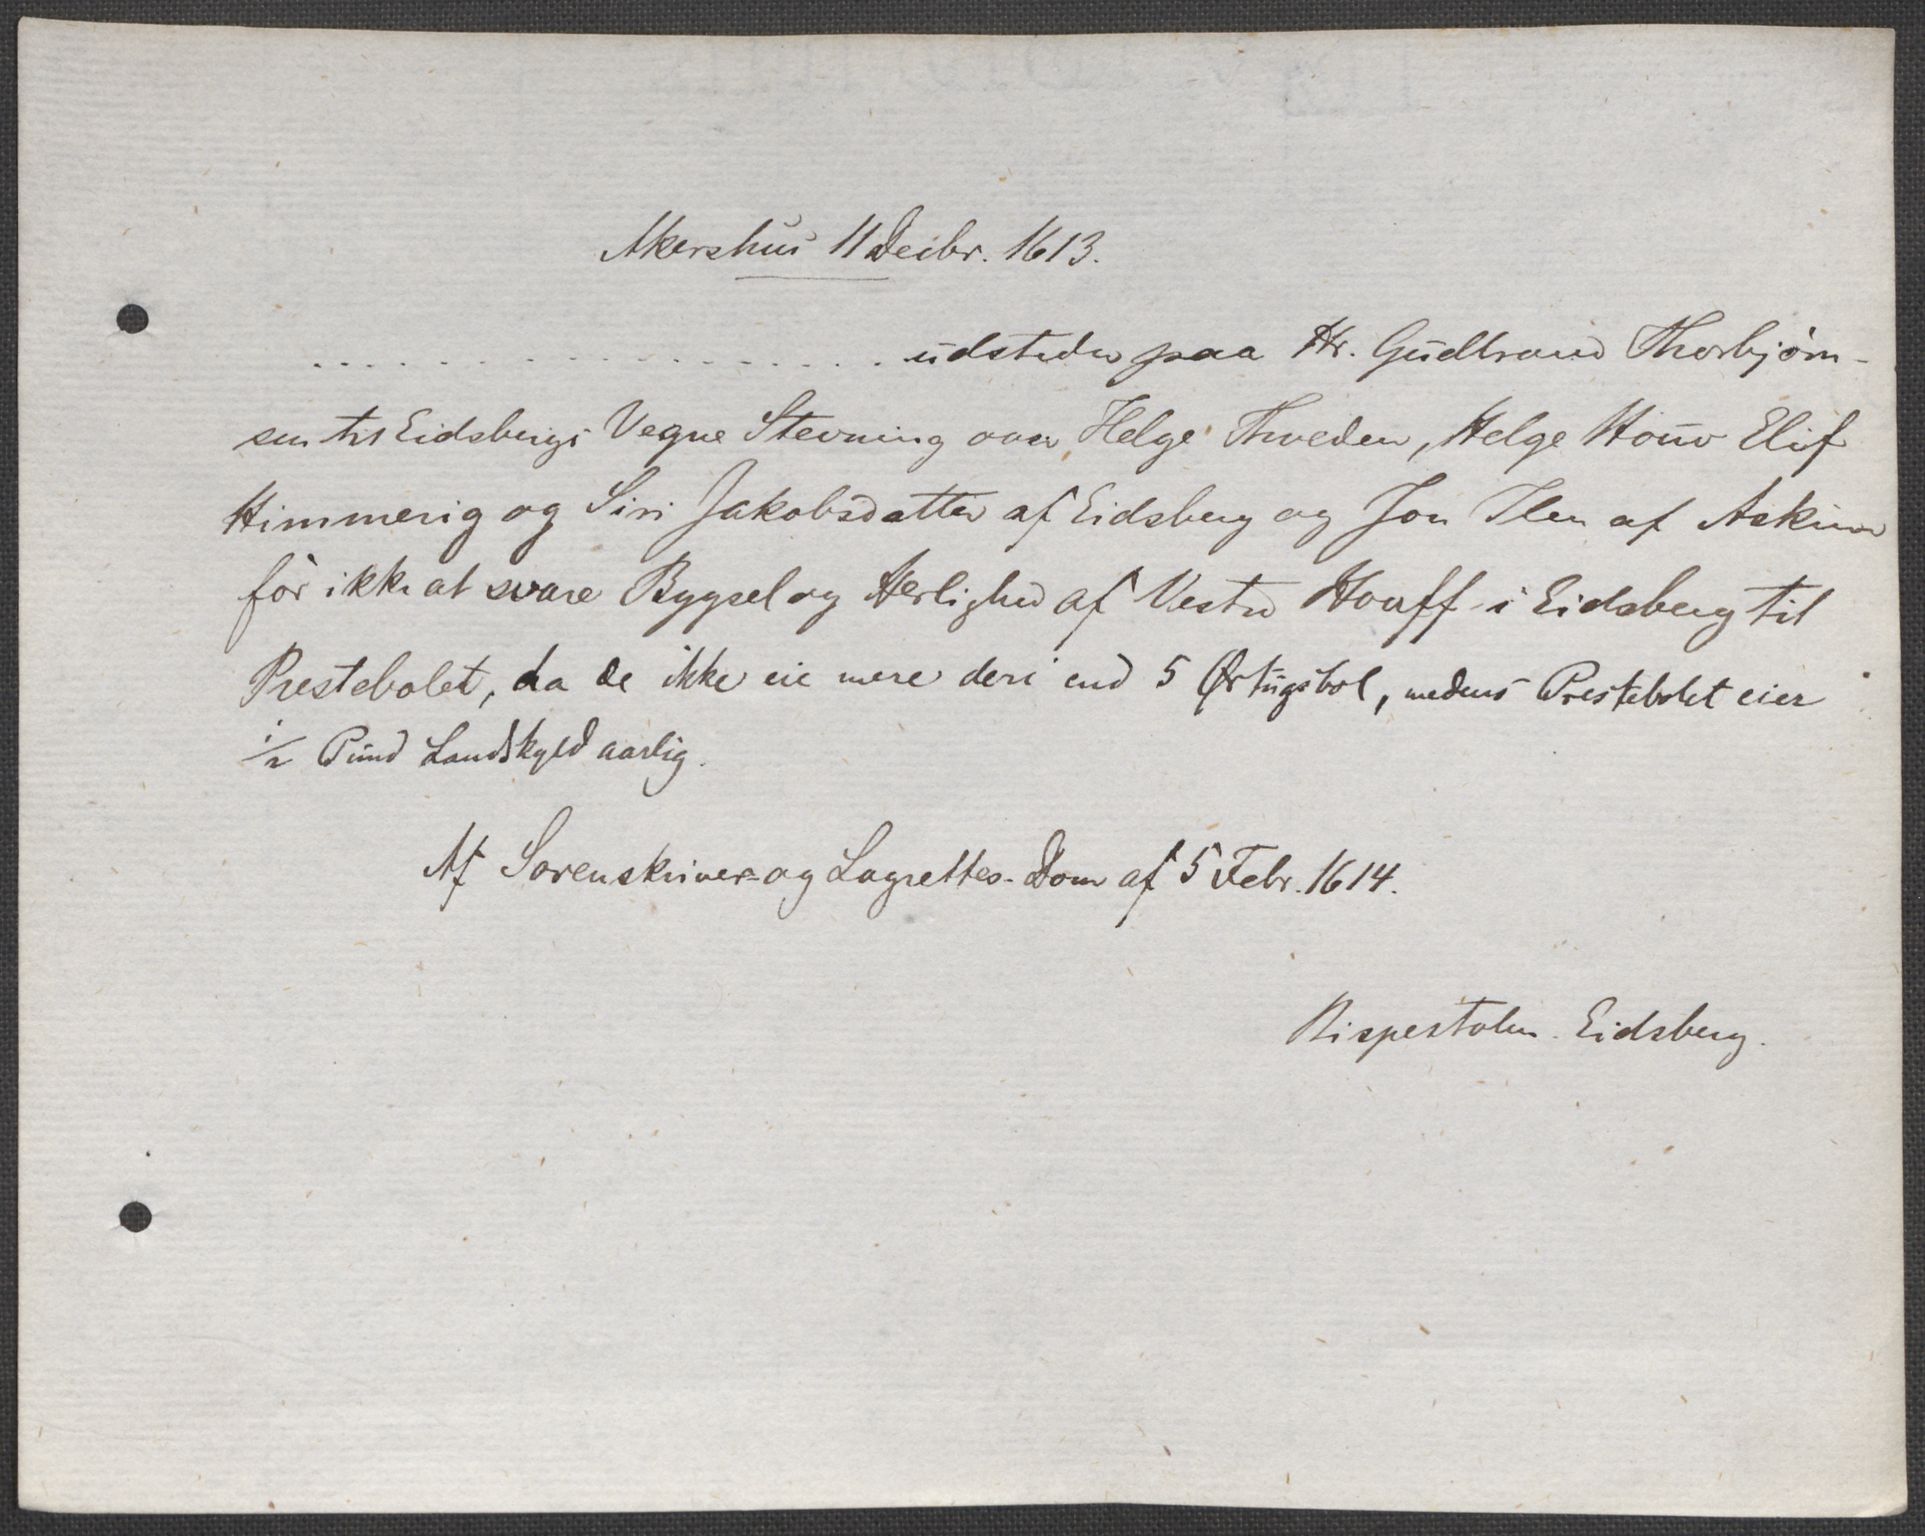 Akershus 11 Decbr. 1613.
. . . . . . . . . . . . . . . . . . udsteder paa Hr. Gudbrand Thorbjörn-
sen til Eidsbergs Vegne Stevning over Helge Thveden, Helge Houv Elif
Himmerig og Siri Jakobsdatter af Eidsberg og Jon Ilen af Askim
for ikke at svare Bygsel og Herlighed af Vestre Houff i Eidsberg til
Prestebolet, da de ikke eie mere deri end 5 Ørtugsbol, medens Prestebolet eier
1/2 Pund Landskyld aarlig.
Af Sorenskriver- og Lagrettes-Dom af 5 Febr. 1614.
Bispestolen. Eidsberg.